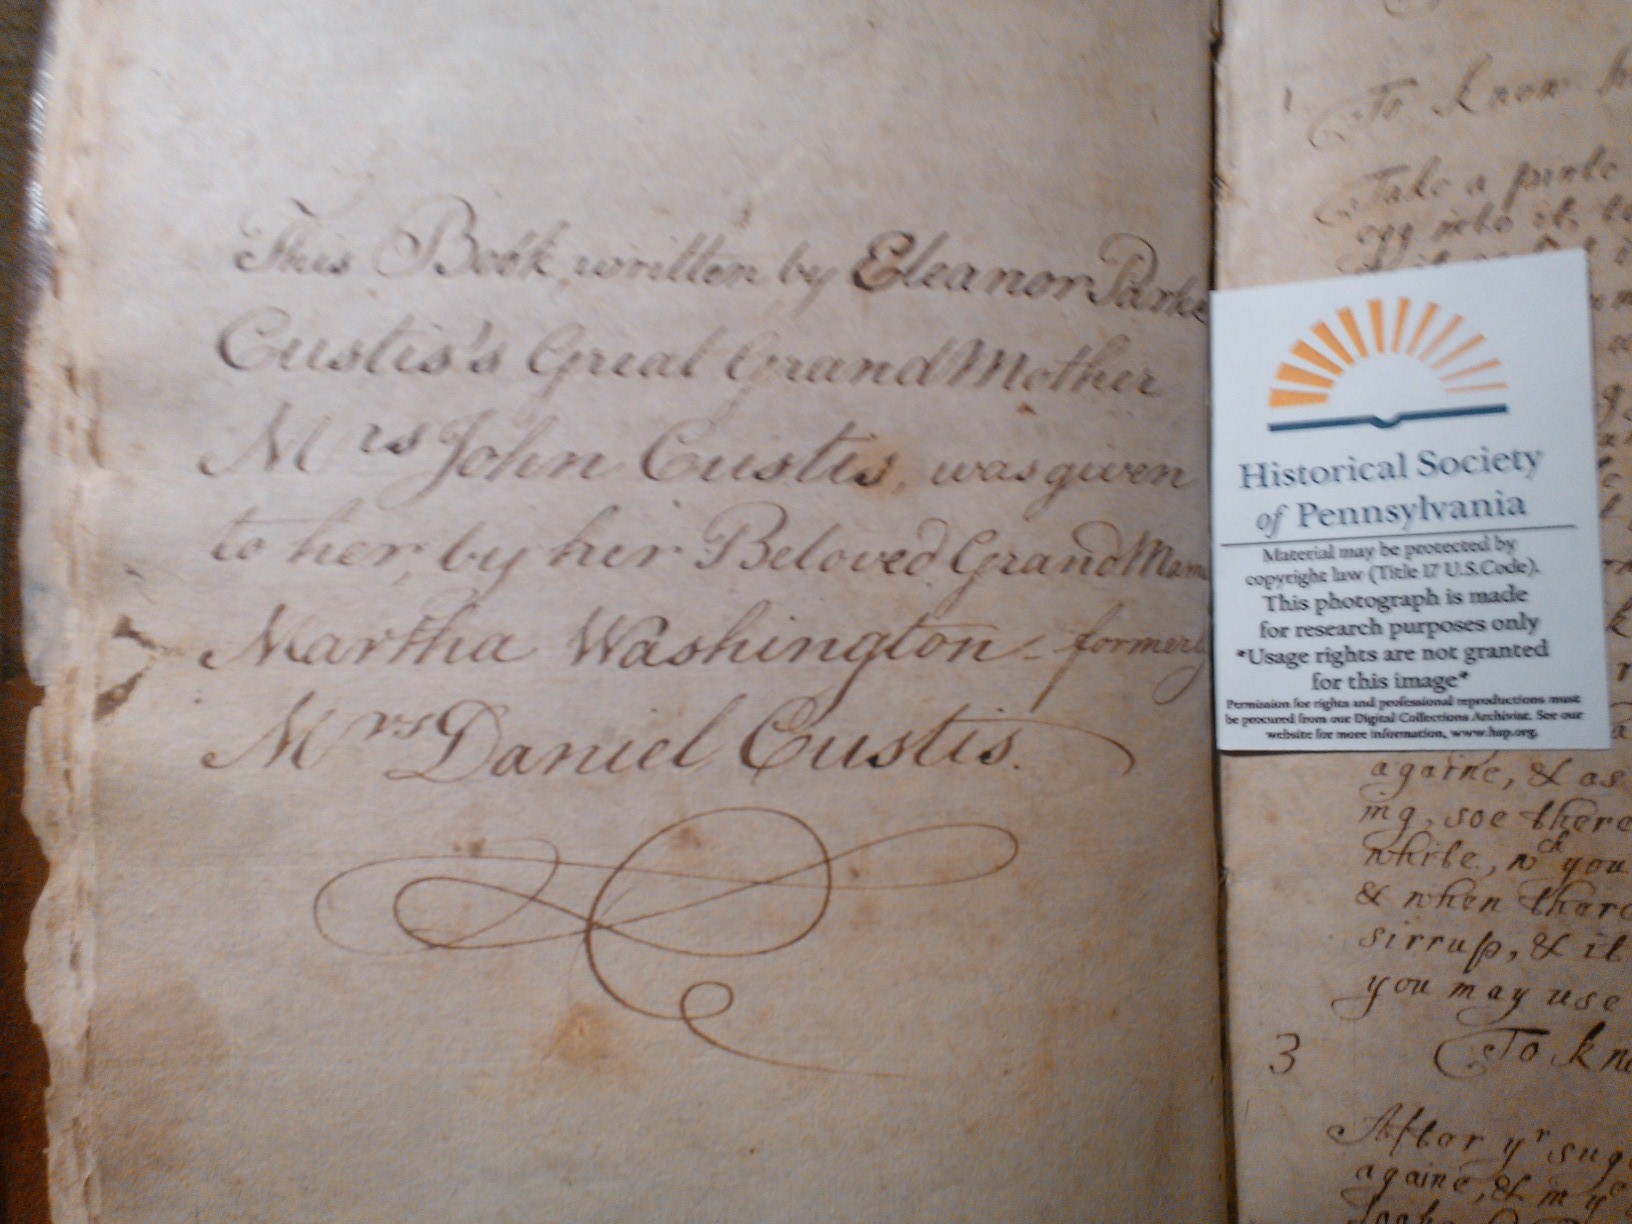 This Book, written by Eleanor Parke
Custis's Great GrandMother
Mrs John Custis, was given
to her, by her Beloved GrandMama
Martha Washington - formerly
Mrs Daniel Custis.
Historical Society
of Pennsylvania
Material may be protected by
copyright law (Title 17 U.S.Code).
This photograph is made
for research purposes only
*Usage rights are not granted
for this image*
Permission for rights and professional reproductions must
be procured from our Digital Collections Archivist. See our
website for more information, www.hsp.org.
1 To know
Take a pinte
egg into it
againe, & as
ing, soe there
while, wch you
& when there
sirrup, & it
you may use
3 To kno
After yr sug
againe, & in ye